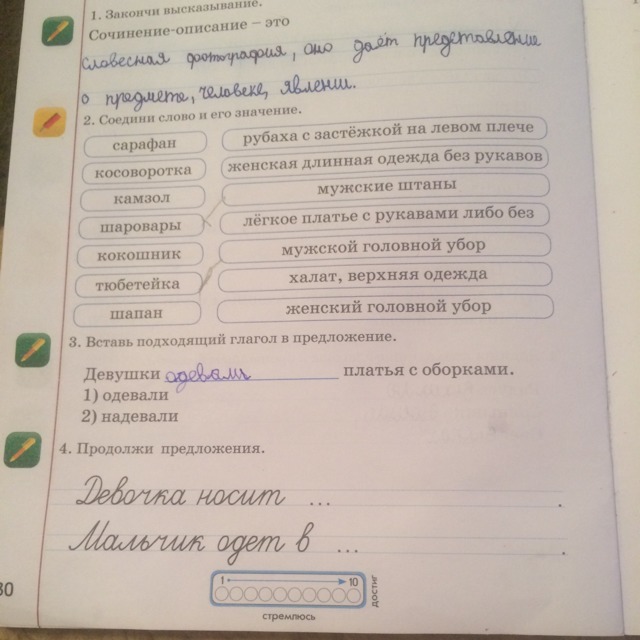 1. Закончи высказывание.
Сочинение-описание – это
словесная фотография, оно даёт представление
о предмете, человеке, явлении.
2. Соедини слово и его значение.
сарафан
рубаха с застёжкой на левом плече
косоворотка
женская длинная одежда без рукавов
камзол
мужские штаны
шаровары
лёгкое платье с рукавами либо без
кокошник
мужской головной убор
тюбетейка
халат, верхняя одежда
шапан
женский головной убор
3. Вставь подходящий глагол в предложение.
Девушки одевали платья с оборками.
1) одевали
2) надевали
4. Продолжи предложения.
Девочка носит ... .
Мальчик одет в ... .
1 10
достиг
стремлюсь